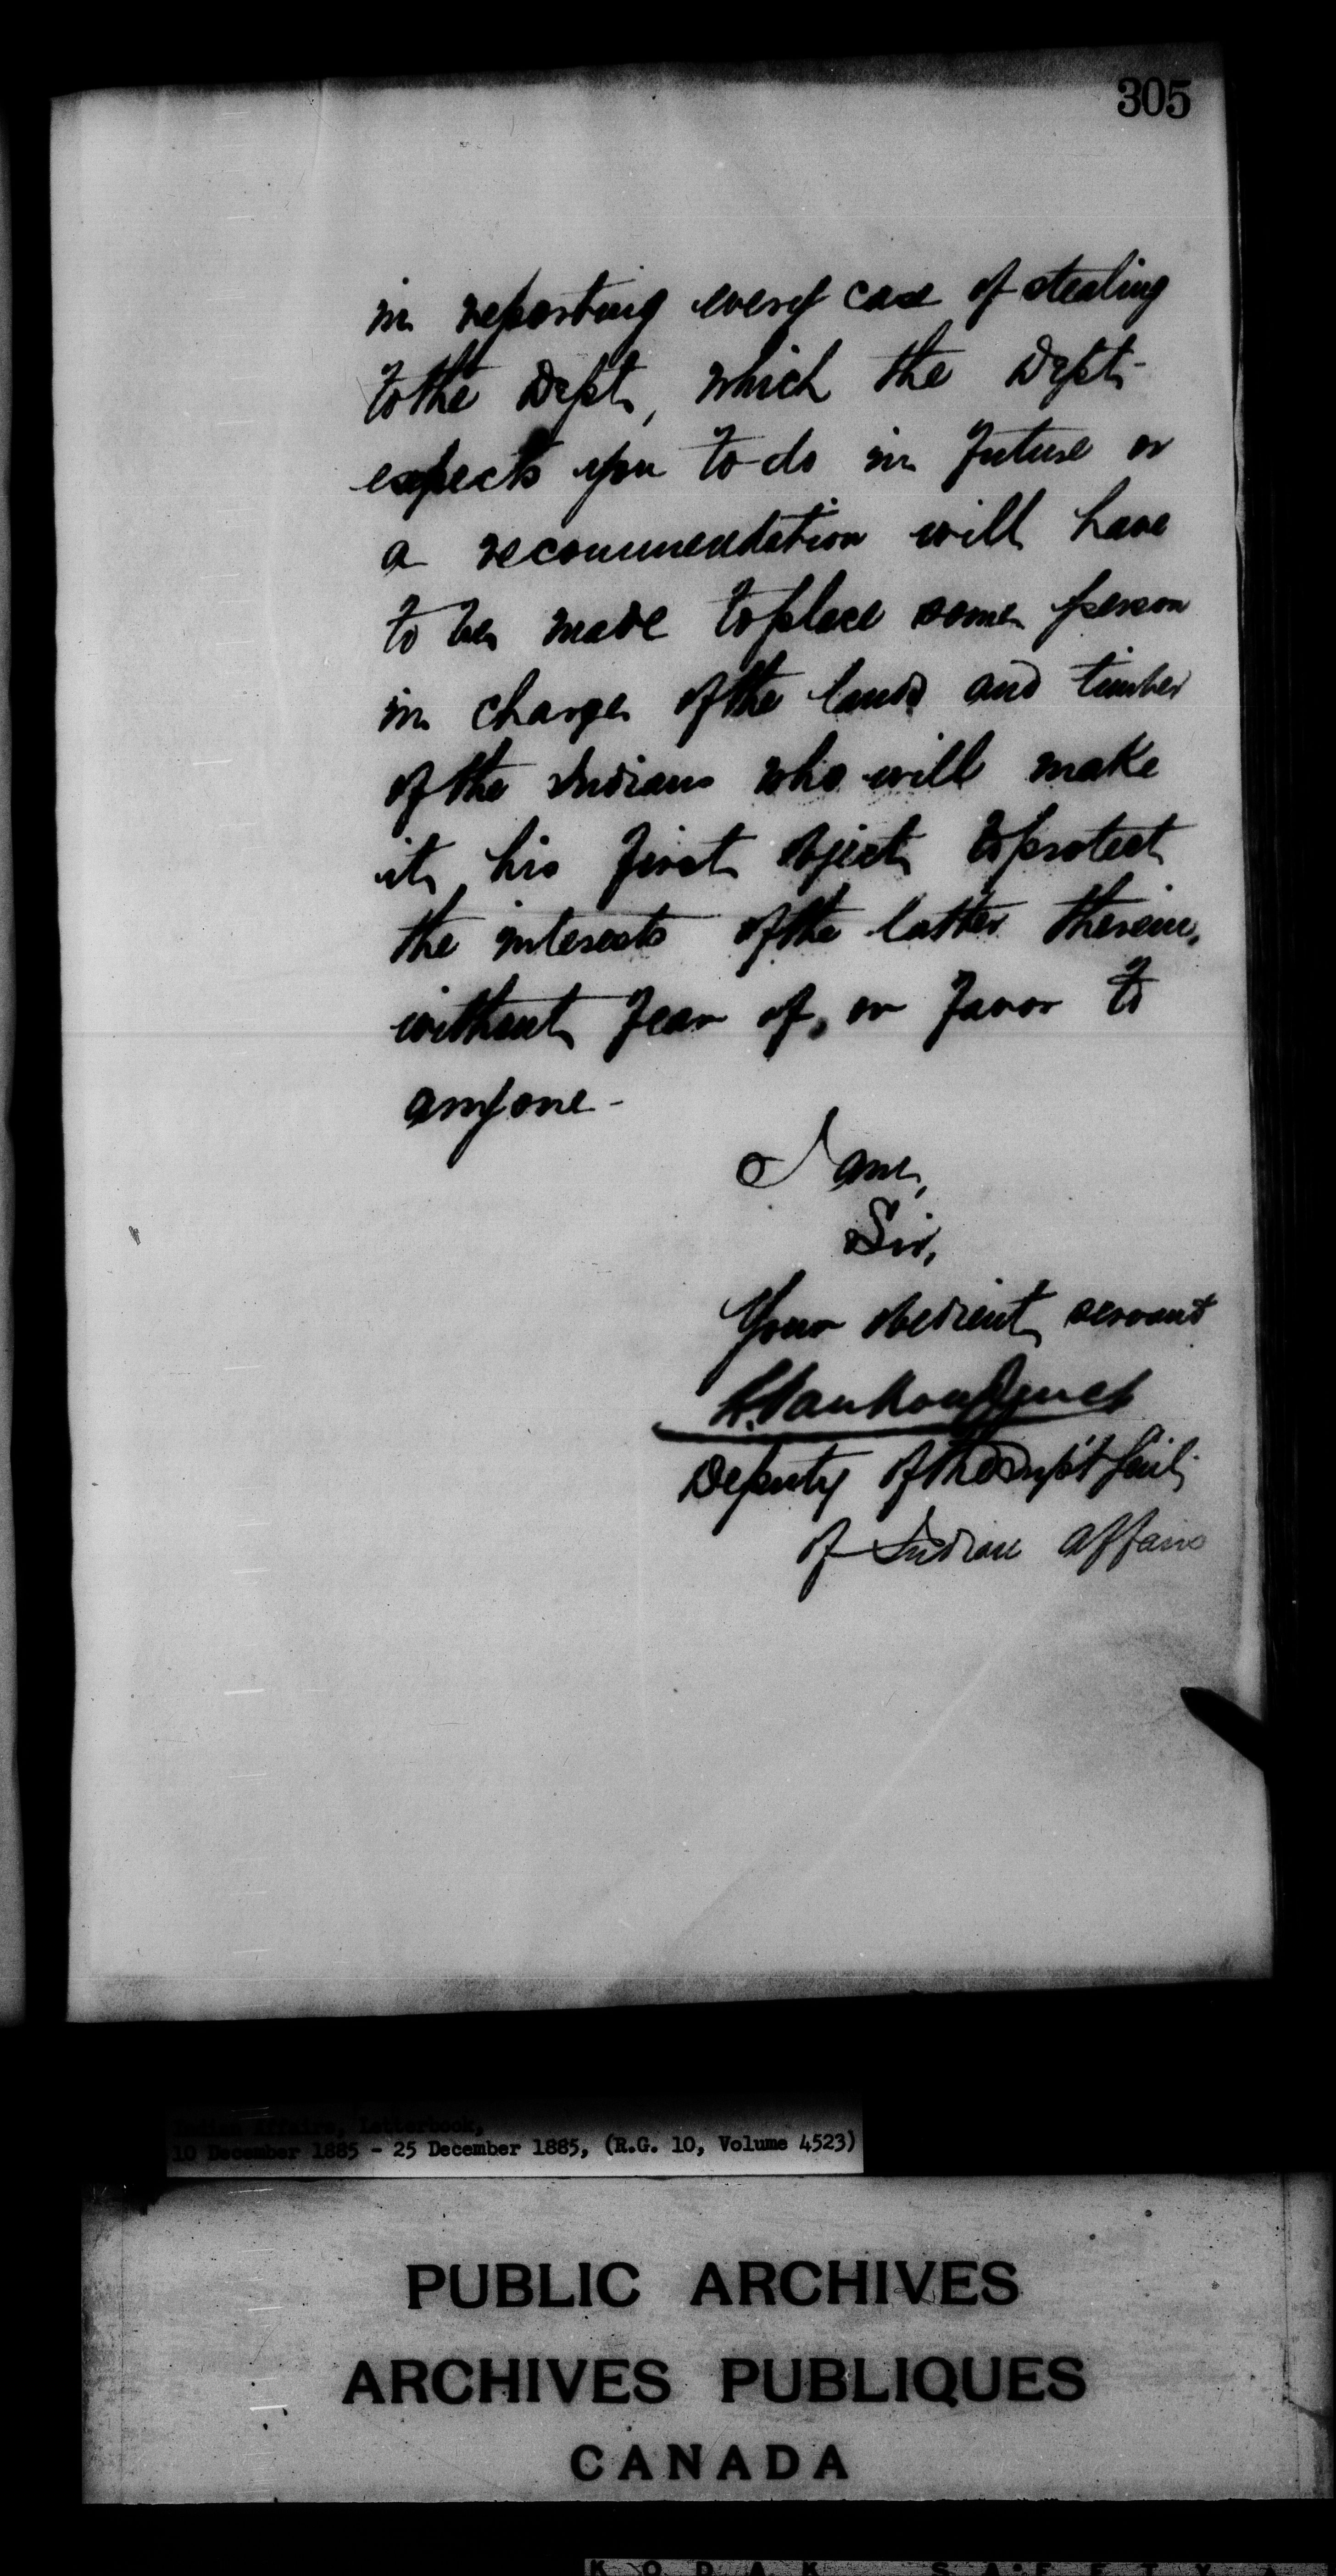 305
in reporting every case of stealing
to the Dept, which the Dept-
expects you to do in future or
a recommendation will have
to be made to place some person
in charge of the lands and timber
of the Indians who will make
it his first object to protect
the interests of the latter therein,
without fear of, or favor to
anyone -
I am,
Sir,
Your obedient servant
L. Vankoughnet
Deputy of the Supt Genl.
of Indian Affairs
Indian Affairs, Letterbook,
10 December 1885 - 25 December 1885, (R.G. 10, Volume 4523)
PUBLIC ARCHIVES
ARCHIVES PUBLIQUES
CANADA
KODAK SAFETY